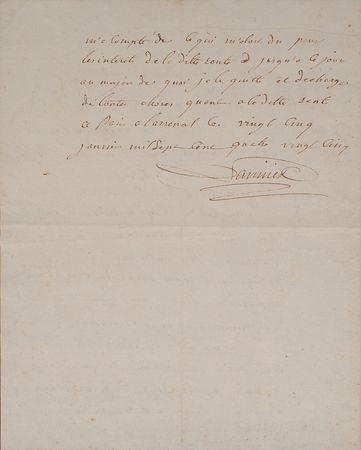 me compté de ce qui m'etoit du pour
les interets de la ditte rente d jusqu'a ce jour
au moyen de quoi je le quitte et decharge
de toutes choses quant a la ditte rente
ce Paris a l'arsenal le vingt Cinq
janvier mil Sept Cent quatre vingt Cinq